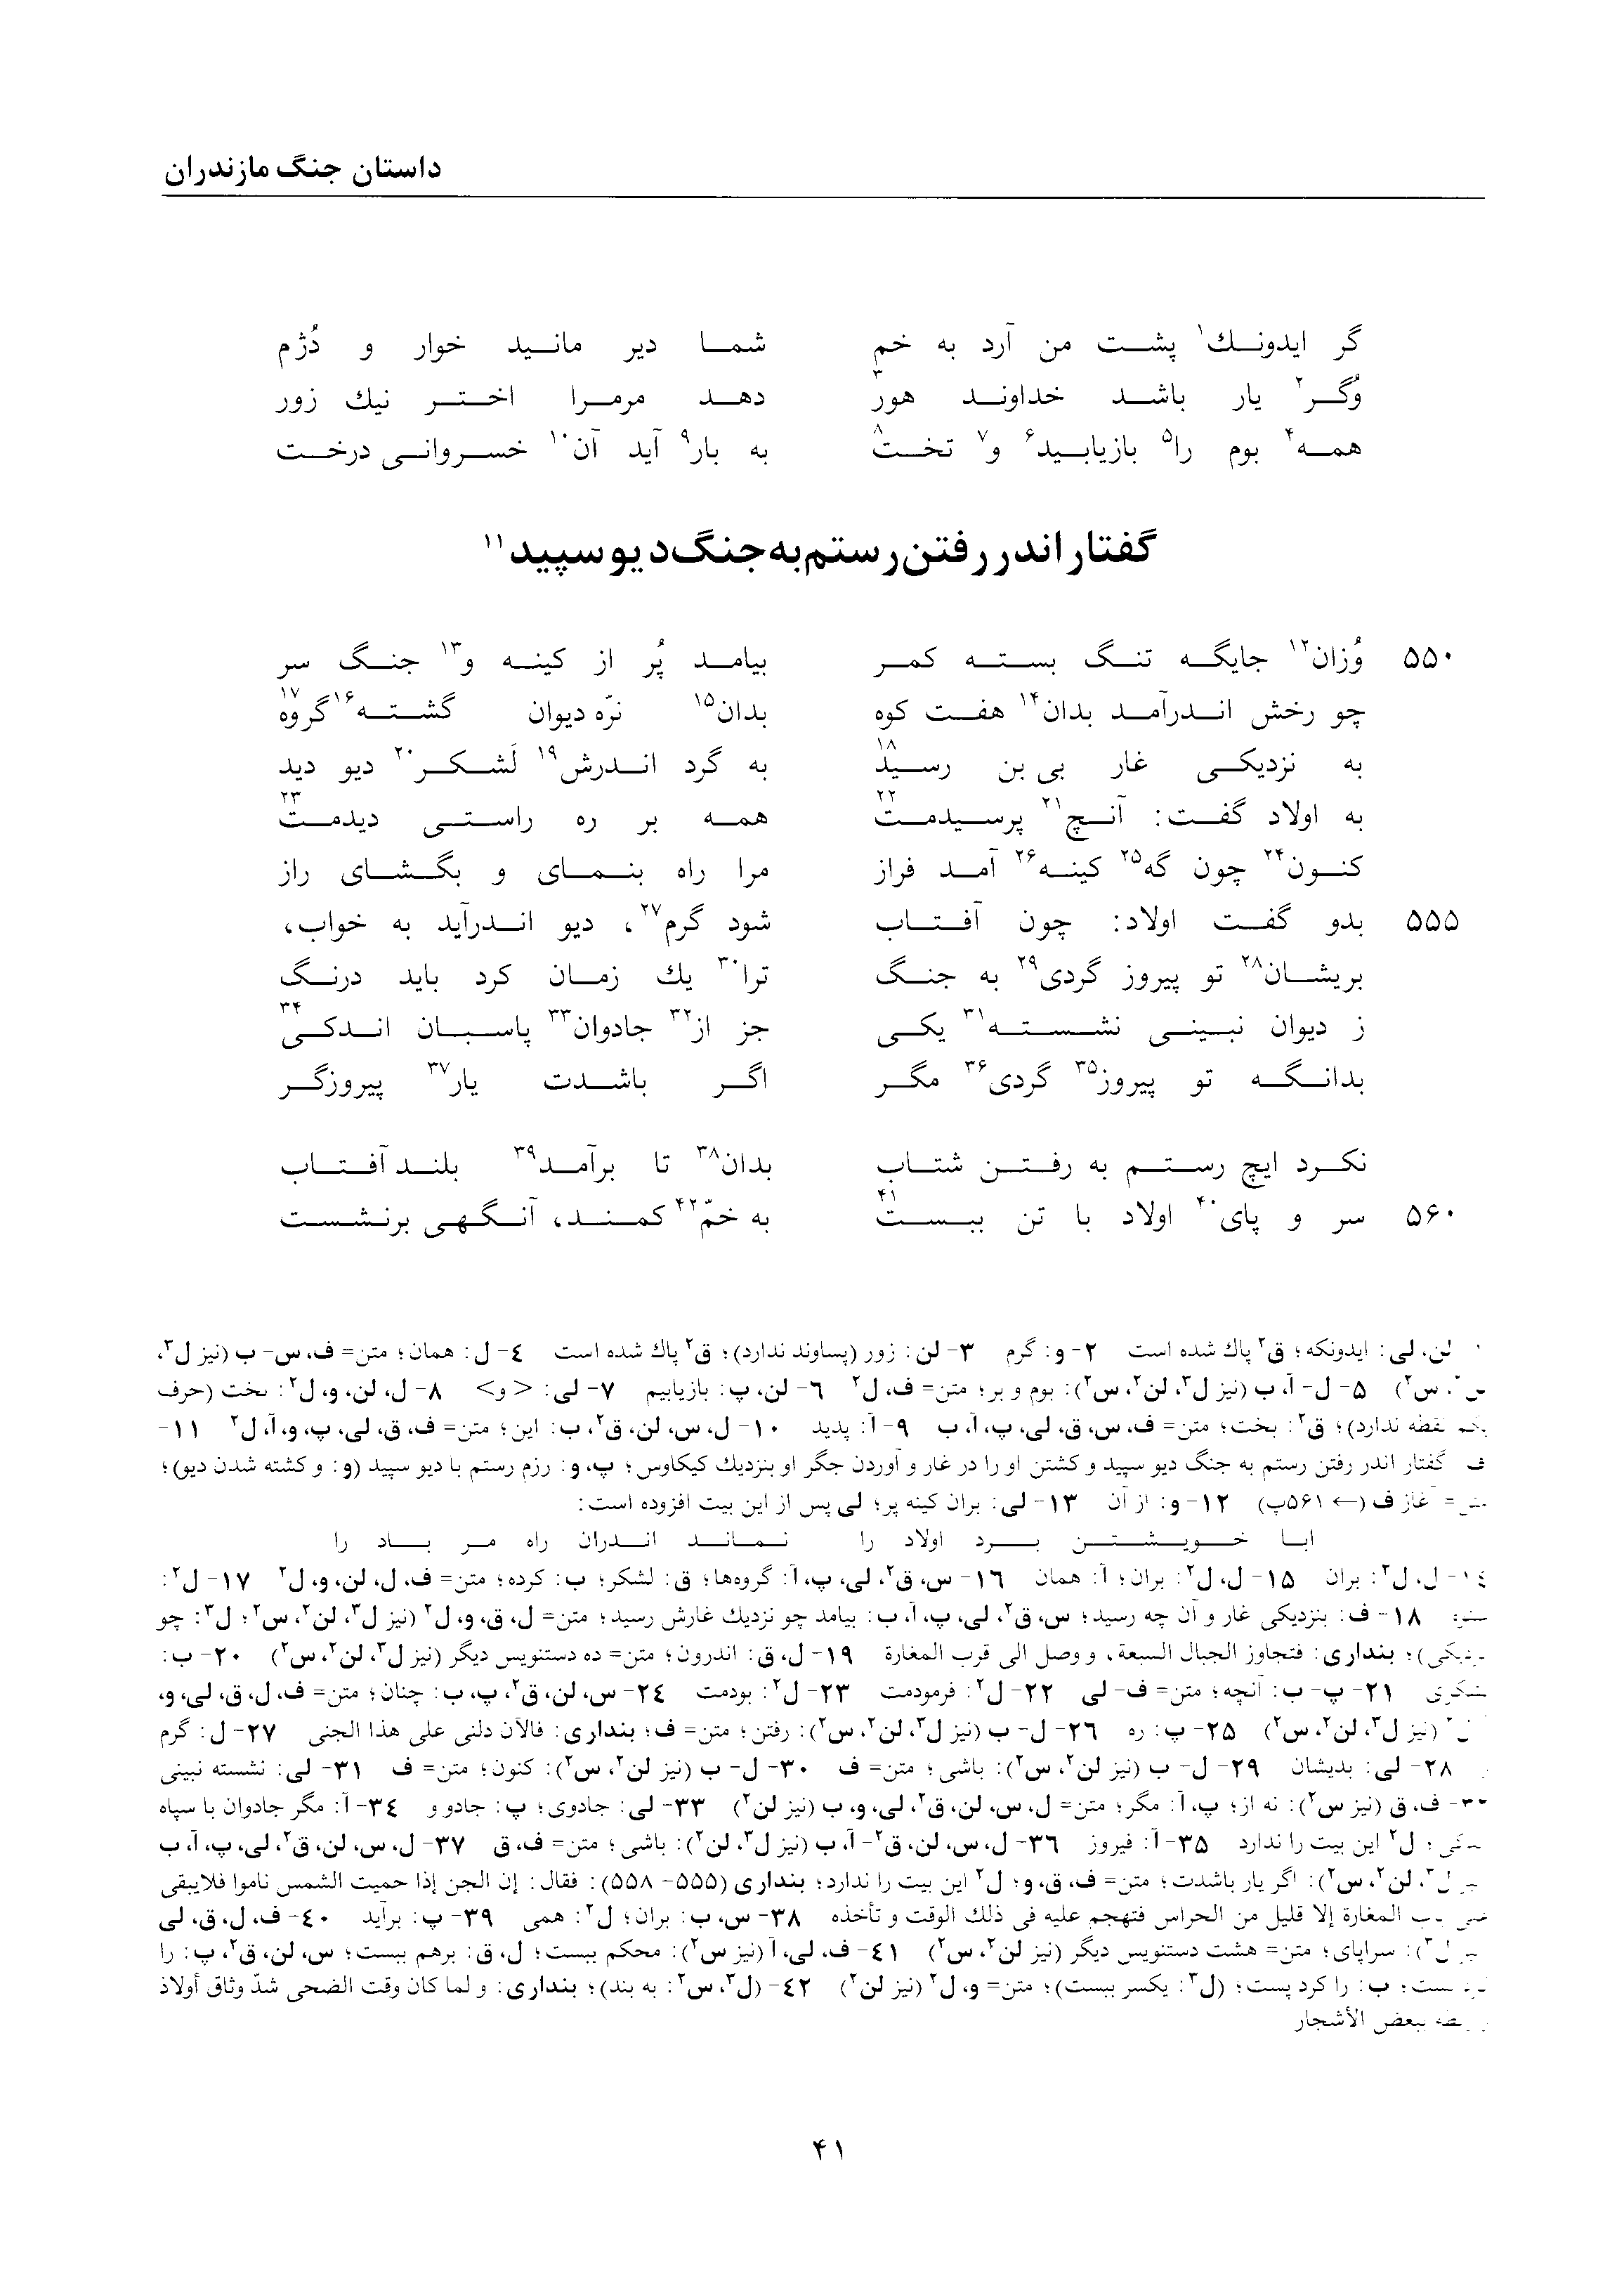 داستان جنگ مازندران
گر ایدونک۱ پشت من آرد به خم شما دیر مانید خوار و دُژم
وُگر۲ یار باشد خداوند هور۳ دهد مرمرا اختر نیك زور
همه۴ بوم را۵ بازیابید۶ و۷ تخت۸ به بار۹ آید آن۱۰ خسروانی درخت
گفتار اندر رفتن رستم به جنگ دیو سپید۱۱
۵۵۰ وُزان۱۲ جایگه تنگ بسته کمر بیامد پُر از کینه و۱۳ جنگ سر
چو رخش اندرآمد بدان۱۴ هفت کوه بدان۱۵ نرّه دیوان گشته۱۶ گروه۱۷
به نزدیکی غار بی بن رسید۱۸ به گرد اندرش۱۹ لَشکر۲۰ دیو دید
به اولاد گفت: آنچ۲۱ پرسیدمت۲۲ همه بر ره راستی دیدمت۲۳
کنون۲۴ چون گه۲۵ کینه۲۶ آمد فراز مرا راه بنمای و بگشای راز
۵۵۵ بدو گفت اولاد: چون آفتاب شود گرم۲۷، دیو اندرآید به خواب،
بریشان۲۸ تو پیروز گردی۲۹ به جنگ ترا۳۰ یك زمان کرد باید درنگ
ز دیوان نبینی نشسته۳۱ یکی جز از۳۲ جادوان۳۳ پاسبان اندکی۳۴
بدانگه تو پیروز۳۵ گردی۳۶ مگر اگر باشدت یار۳۷ پیروزگر
نکرد ایچ رستم به رفتن شتاب بدان۳۸ تا برآمد۳۹ بلند آفتاب
۵۶۰ سر و پای۴۰ اولاد با تن ببست۴۱ به خمّ۴۲ کمند، آنگهی برنشست
لن، لی: ایدونکه؛ ق۲ پاك شده است ۲- و: گرم ۳- لن: زور (پساوند ندارد)؛ ق۲ پاك شده است ۴- ل: همان؛ متن= ف، س- ب (نیز ل۳،
س۲) ۵- ل- آ، ب (نیز ل۳، لن۲، س۲): بوم و بر؛ متن= ف، ل۲ ۶- لن، پ: بازیابیم ۷- لی: <و> ۸- ل، لن، و، ل۲: بخت (حرف
یکم نقطه ندارد)؛ ق۲: بخت؛ متن= ف، س، ق، لی، پ، آ، ب ۹- آ: پدید ۱۰- ل، س، لن، ق۲، ب: این؛ متن= ف، ق، لی، پ، و، آ، ل۲ ۱۱-
ف گفتار اندر رفتن رستم به جنگ دیو سپید و کشتن او را در غار و آوردن جگر او بنزدیك کیکاوس؛ پ، و: رزم رستم با دیو سپید (و: و کشته شدن دیو)؛
= آغاز ف (← ۵۶۱پ) ۱۲- و: از آن ۱۳- لی: بران کینه پر؛ لی پس از این بیت افزوده است:
ابا خویشتن برد اولاد را نماند اندران راه مر باد را
۱۴- ل، ل۲: بران ۱۵- ل، ل۲: بران؛ آ: همان ۱۶- س، ق۲، لی، پ، آ: گروه‌ها؛ ق: لشکر؛ ب: کرده؛ متن= ف، ل، لن، و، ل۲ ۱۷- ل۲:
۱۸- ف: بنزدیکی غار و آن چه رسید؛ س، ق۲، لی، پ، آ، ب: بیامد چو نزدیك غارش رسید؛ متن= ل، ق، و، ل۲ (نیز ل۳، لن۲، س۲؛ ل۳: چو
نزدیکی)؛ بنداری: فتجاوز الجبال السبعة، و وصل الی قرب المغارة ۱۹- ل، ق: اندرون؛ متن= ده دستنویس دیگر (نیز ل۳، لن۲، س۲) ۲۰- ب:
لشکری ۲۱- پ- ب: آنچه؛ متن= ف- لی ۲۲- ل۲: فرمودمت ۲۳- ل۲: بودمت ۲۴- س، لن، ق۲، پ، ب: چنان؛ متن= ف، ل، ق، لی، و،
(نیز ل۳، لن۲، س۲) ۲۵- پ: ره ۲۶- ل- ب (نیز ل۳، لن۲، س۲): رفتن؛ متن= ف؛ بنداری: فالآن دلنی علی هذا الجنی ۲۷- ل: گرم
۲۸- لی: بدیشان ۲۹- ل- ب (نیز لن۲، س۲): باشی؛ متن= ف ۳۰- ل- ب (نیز لن۲، س۲): کنون؛ متن= ف ۳۱- لی: نشسته نبینی
۳۲- ف، ق (نیز س۲): نه از؛ پ، آ: مگر؛ متن= ل، س، لن، ق۲، لی، و، ب (نیز لن۲) ۳۳- لی: جادوی؛ پ: جادو و ۳۴- آ: مگر جادوان با سپاه
؛ ل۲ این بیت را ندارد ۳۵- آ: فیروز ۳۶- ل، س، لن، ق۲- آ، ب (نیز ل۳، لن۲): باشی؛ متن= ف، ق ۳۷- ل، س، لن، ق۲، لی، پ، آ، ب
ل۳، لن۲، س۲): اگر یار باشدت؛ متن= ف، ق، و؛ ل۲ این بیت را ندارد؛ بنداری (۵۵۵- ۵۵۸): فقال: إن الجن إذا حمیت الشمس ناموا فلایبقی
المغارة إلا قلیل من الحراس فتهجم علیه فی ذلك الوقت و تأخذه ۳۸- س، ب: بران؛ ل۲: همی ۳۹- پ: برآید ۴۰- ف، ل، ق، لی
ل۳): سراپای؛ متن= هشت دستنویس دیگر (نیز لن۲، س۲) ۴۱- ف، لی، آ (نیز س۲): محکم ببست؛ ل، ق: برهم ببست؛ س، لن، ق۲، پ: را
؛ ب: را کرد پست؛ (ل۳: یکسر ببست)؛ متن= و، ل۲ (نیز لن۲) ۴۲- (ل۳، س۲: به بند)؛ بنداری: و لما کان وقت الضحی شدّ وثاق أولاذ
ببعض الأشجار
۴۱